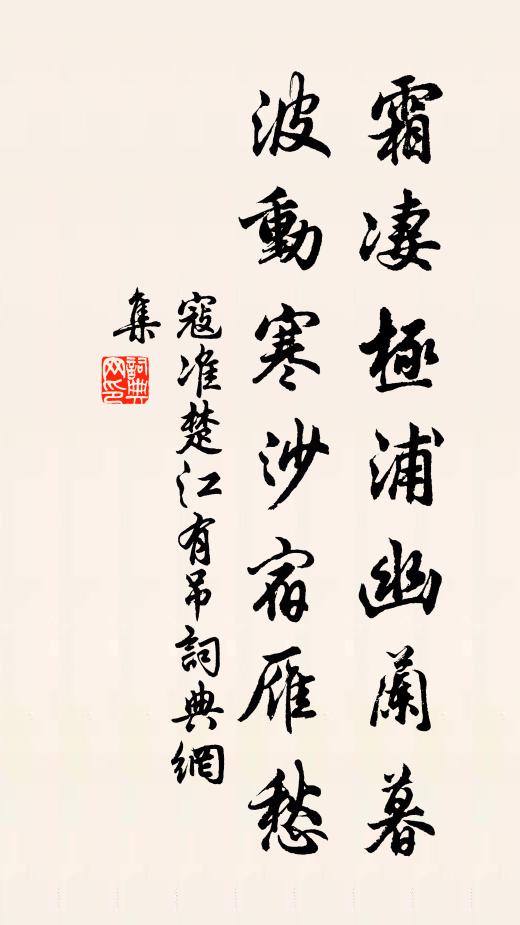 霜凄極浦幽蘭暮
波動寒沙宿雁愁
寇准楚江有吊詞典網
集
詞典
网印